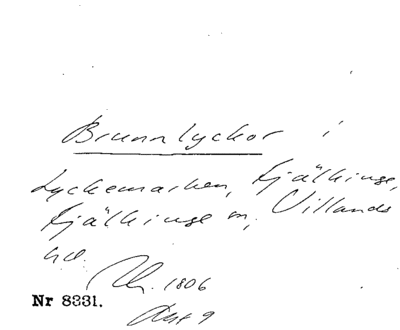 Brunnlyckor i
Lyckemarken, Fjälkinge,
Fjälkinge sn, Villands
hd.
1806
Nr 8331.
Akt 9